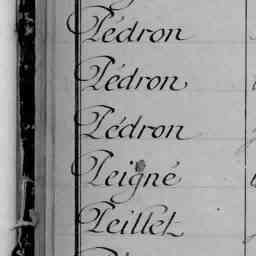 Pédron
Pédron
Pédron
Peigné
Peillet